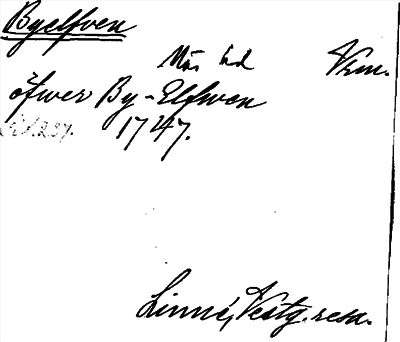 Byelfven
Näs hd Vrm.
öfwer By-Elfwen
1747.
s. 237.
Linné, Västg. resa.